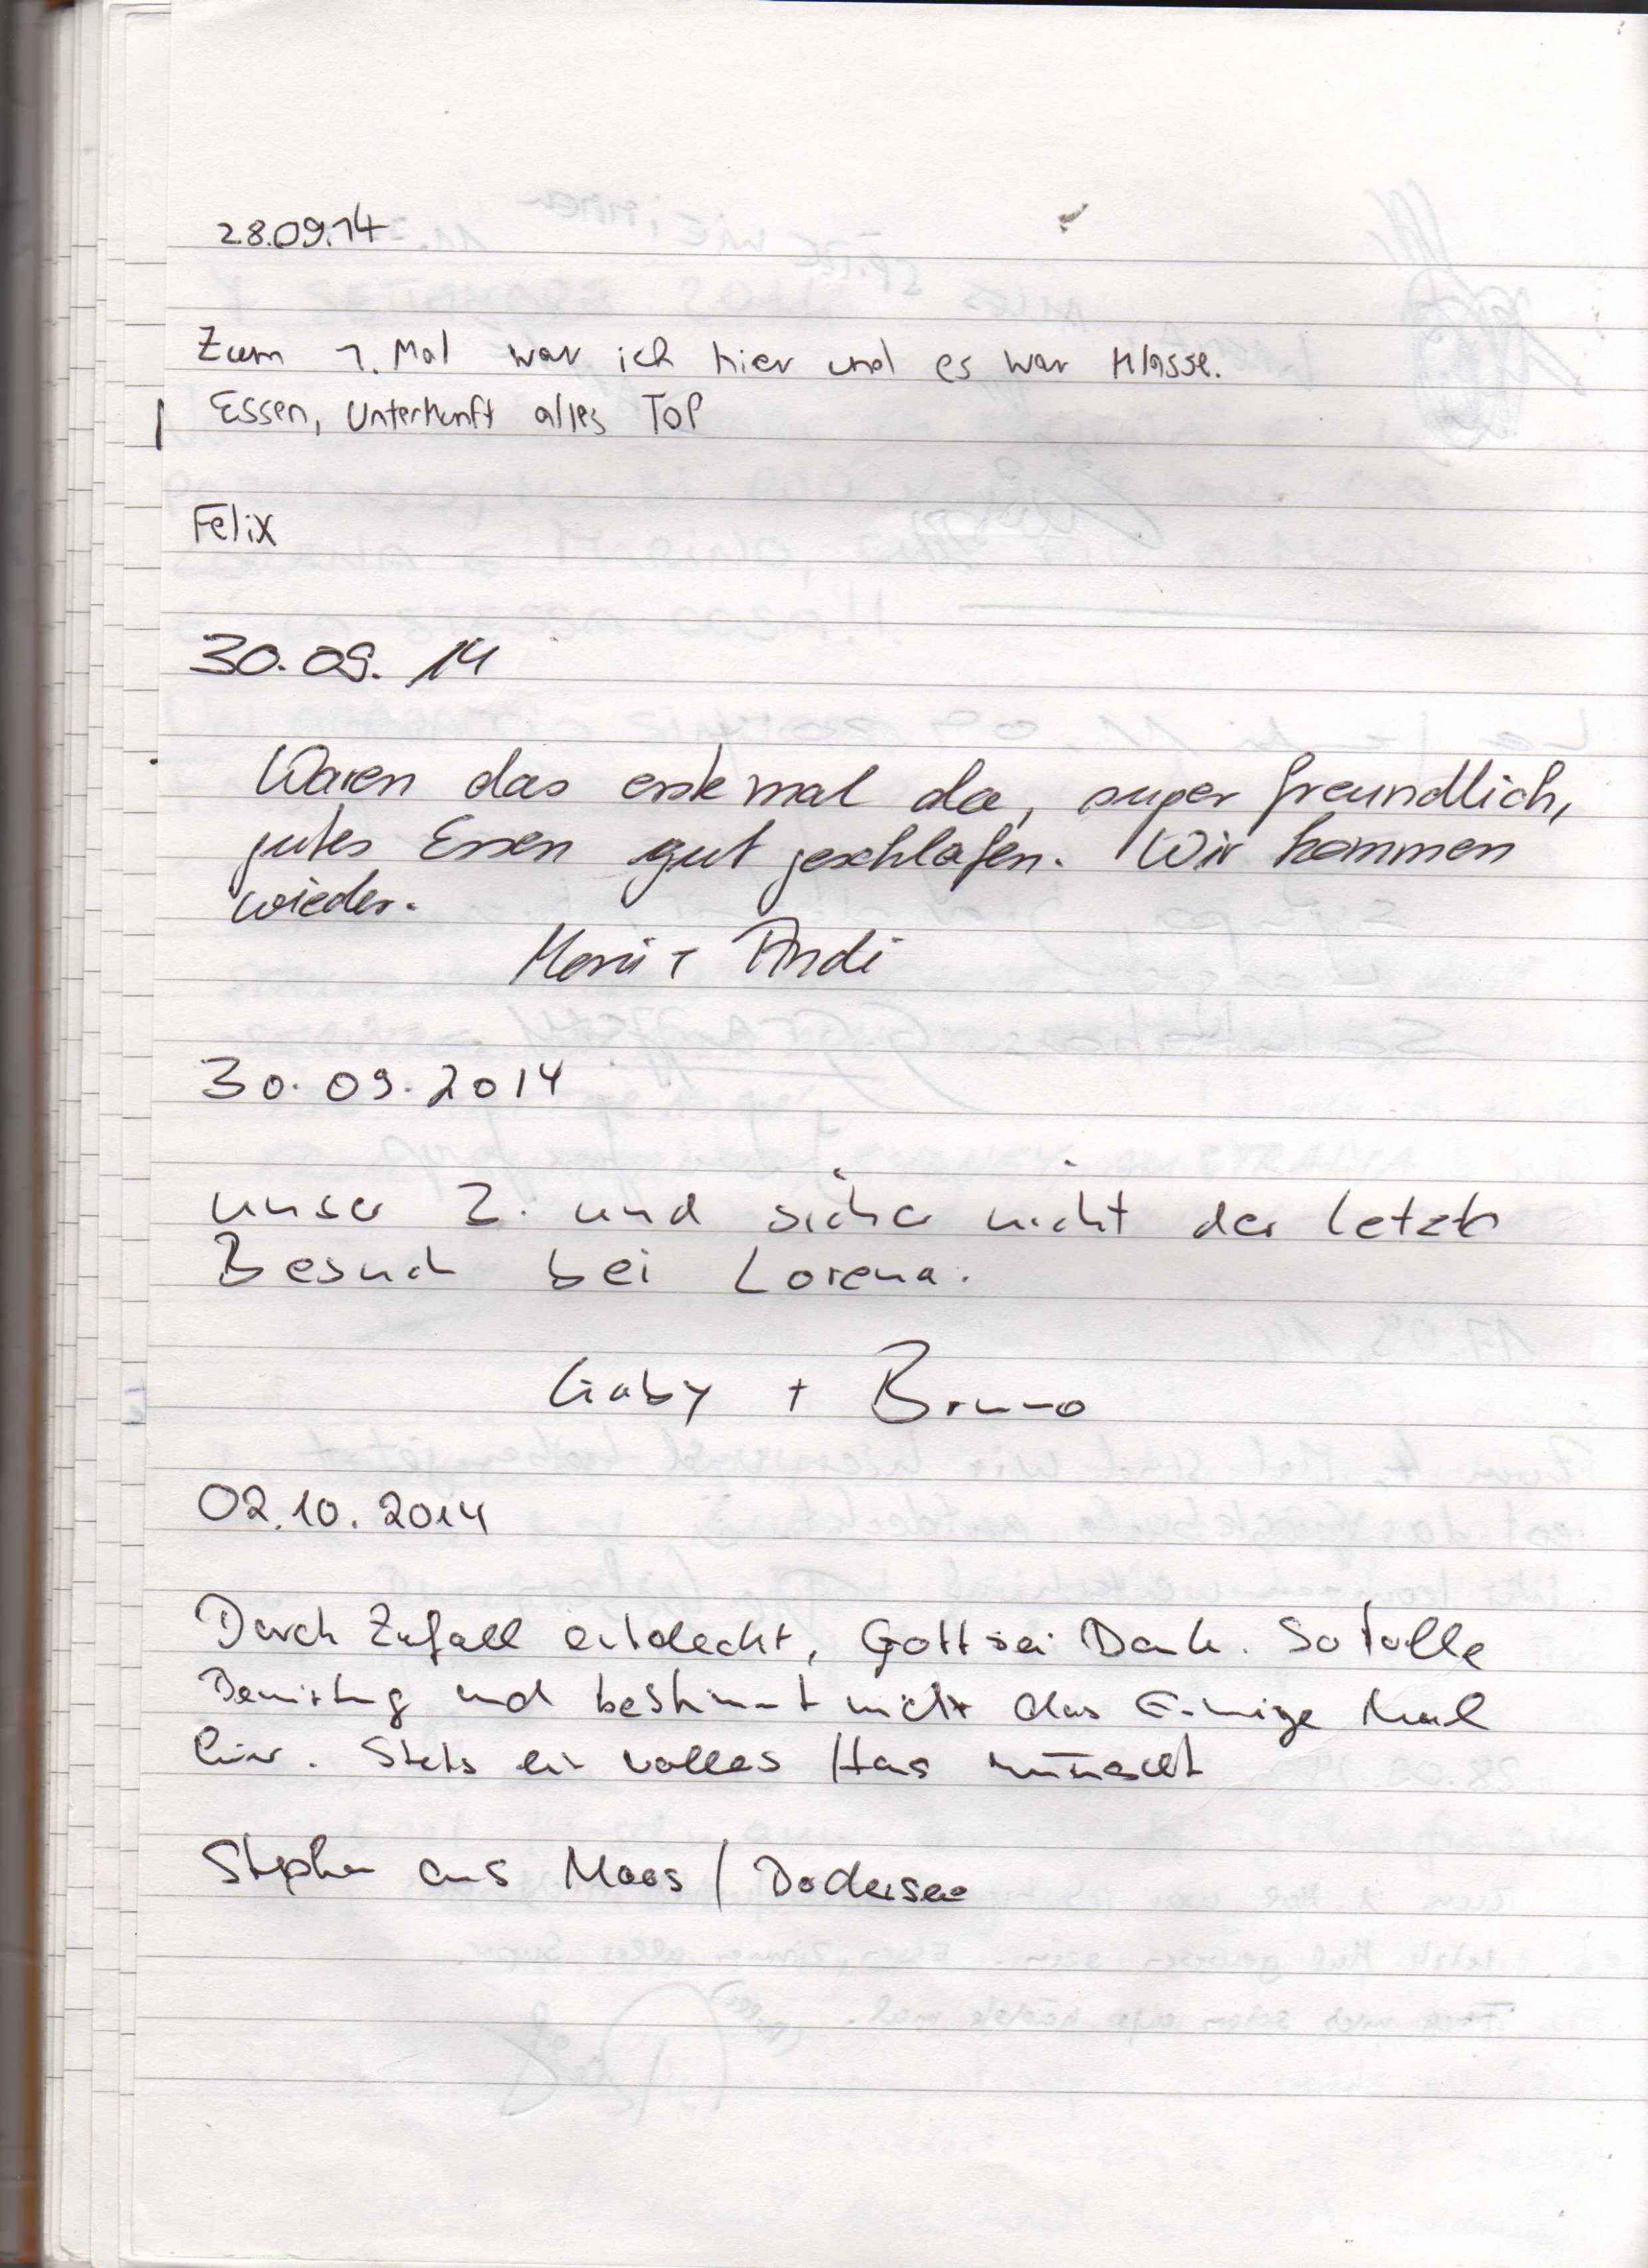 28.09.14
Zum 1. Mal war ich hier und es war Klasse.
Essen, Unterkunft alles Top
Felix
30.09.14
Waren das erste mal da, super freundlich,
gutes Essen gut geschlafen. Wir kommen
wieder.
Moni + Andi
30.09.2014
unser 2. und sicher nicht der letzte
Besuch bei Lorena.
Gaby + Bruno
02.10.2014
Durch Zufall entdeckt, Gott sei Dank. So tolle
Bewirtung und bestimmt nicht das Einzige Mal
hier. Stets ein volles Haus wünscht
Stephan aus Moos / Bodensee